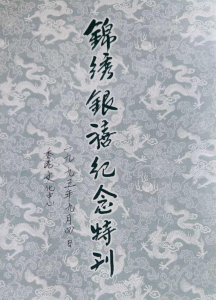 錦綉銀禧紀念特刊
一九九三年九月四日
香港文化中心